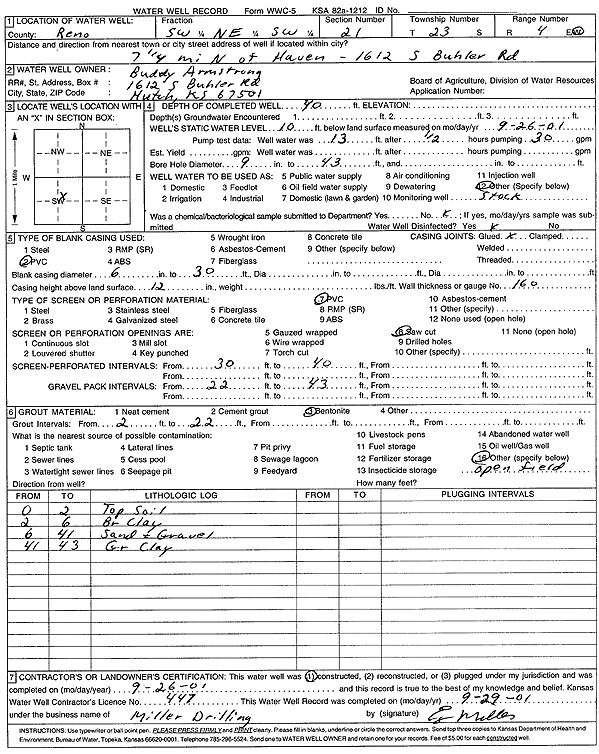 WATER WELL RECORD Form WWC-5 KSA 82a-1212 ID No.
1 LOCATION OF WATER WELL: Fraction Section Number Township Number Range Number
County: Reno SW ¼ NE ¼ SW ¼ 21 T 23 S R 4 E/W
Distance and direction from nearest town or city street address of well if located within city?
7 1/4 mi N of Haven - 1612 S Buhler Rd
2 WATER WELL OWNER: Buddy Armstrong
RR#, St. Address, Box # : 1612 S Buhler Rd Board of Agriculture, Division of Water Resources
City, State, ZIP Code : Hutch, KS 67501 Application Number:
3 LOCATE WELL'S LOCATION WITH AN "X" IN SECTION BOX:
N
NW NE
W E
SW X SE
S
1 Mile
4 DEPTH OF COMPLETED WELL 40 ft. ELEVATION:
Depth(s) Groundwater Encountered 1. ft. 2. ft. 3. ft.
WELL'S STATIC WATER LEVEL 10 ft. below land surface measured on mo/day/yr 9-26-01
Pump test data: Well water was 13 ft. after 1/2 hours pumping 30 gpm
Est. Yield gpm: Well water was ft. after hours pumping gpm
Bore Hole Diameter 9 in. to 43 ft., and in. to ft.
WELL WATER TO BE USED AS: 5 Public water supply 8 Air conditioning 11 Injection well
1 Domestic 3 Feedlot 6 Oil field water supply 9 Dewatering 12 Other (Specify below)
2 Irrigation 4 Industrial 7 Domestic (lawn & garden) 10 Monitoring well Stock
Was a chemical/bacteriological sample submitted to Department? Yes No X ; If yes, mo/day/yrs sample was submitted Water Well Disinfected? Yes X No
5 TYPE OF BLANK CASING USED: 5 Wrought iron 8 Concrete tile CASING JOINTS: Glued X Clamped
1 Steel 3 RMP (SR) 6 Asbestos-Cement 9 Other (specify below) Welded
2 PVC 4 ABS 7 Fiberglass Threaded
Blank casing diameter 6 in. to 30 ft., Dia in. to ft., Dia in. to ft.
Casing height above land surface 12 in., weight lbs./ft. Wall thickness or gauge No. 160
TYPE OF SCREEN OR PERFORATION MATERIAL: 7 PVC 10 Asbestos-cement
1 Steel 3 Stainless steel 5 Fiberglass 8 RMP (SR) 11 Other (specify)
2 Brass 4 Galvanized steel 6 Concrete tile 9 ABS 12 None used (open hole)
SCREEN OR PERFORATION OPENINGS ARE: 5 Gauzed wrapped 8 Saw cut 11 None (open hole)
1 Continuous slot 3 Mill slot 6 Wire wrapped 9 Drilled holes
2 Louvered shutter 4 Key punched 7 Torch cut 10 Other (specify) ft.
SCREEN-PERFORATED INTERVALS: From 30 ft. to 40 ft., From ft. to ft.
From ft. to ft., From ft. to ft.
GRAVEL PACK INTERVALS: From 22 ft. to 43 ft., From ft. to ft.
From ft. to ft., From ft. to ft.
6 GROUT MATERIAL: 1 Neat cement 2 Cement grout 3 Bentonite 4 Other
Grout Intervals: From 2 ft. to 22 ft., From ft. to ft., From ft. to ft.
What is the nearest source of possible contamination: 10 Livestock pens 14 Abandoned water well
1 Septic tank 4 Lateral lines 7 Pit privy 11 Fuel storage 15 Oil well/Gas well
2 Sewer lines 5 Cess pool 8 Sewage lagoon 12 Fertilizer storage 16 Other (specify below)
3 Watertight sewer lines 6 Seepage pit 9 Feedyard 13 Insecticide storage open field
Direction from well? How many feet?
FROM TO LITHOLOGIC LOG FROM TO PLUGGING INTERVALS
0 2 Top Soil
2 6 Br Clay
6 41 Sand + Gravel
41 43 Gr Clay
7 CONTRACTOR'S OR LANDOWNER'S CERTIFICATION: This water well was (1) constructed, (2) reconstructed, or (3) plugged under my jurisdiction and was
completed on (mo/day/year) 9-26-01 and this record is true to the best of my knowledge and belief. Kansas
Water Well Contractor's Licence No. 447 This Water Well Record was completed on (mo/day/yr) 9-29-01
under the business name of Miller Drilling by (signature)
INSTRUCTIONS: Use typewriter or ball point pen. PLEASE PRESS FIRMLY and PRINT clearly. Please fill in blanks, underline or circle the correct answers. Send top three copies to Kansas Department of Health and
Environment, Bureau of Water, Topeka, Kansas 66620-0001. Telephone 785-296-5524. Send one to WATER WELL OWNER and retain one for your records. Fee of $5.00 for each constructed well.